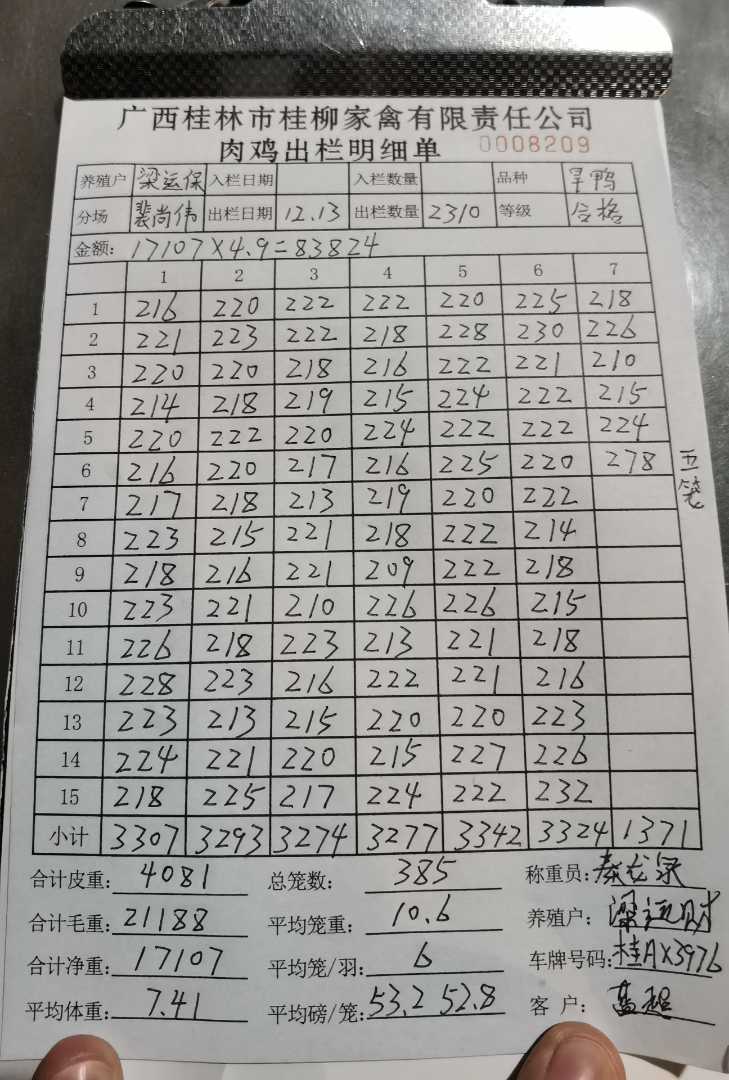 广西桂林市桂柳家禽有限责任公司
肉鸡出栏明细单 0008209
养殖户 梁运保 入栏日期 入栏数量 品种 旱鸭
分场 裴尚伟 出栏日期 12.13 出栏数量 2310 等级 合格
金额: 17107×4.9=83824
1 2 3 4 5 6 7
1 216 220 222 222 220 225 218
2 221 223 222 218 228 230 226
3 220 220 218 216 222 221 210
4 214 218 219 215 224 222 215
5 220 222 220 224 222 222 224
6 216 220 217 216 225 220 278 五笼
7 217 218 213 219 220 222
8 223 215 221 218 222 214
9 218 216 221 209 222 218
10 223 221 210 226 226 215
11 226 218 223 213 221 218
12 228 223 216 222 221 216
13 223 213 215 220 220 223
14 224 221 220 215 227 226
15 218 225 217 224 222 232
小计 3307 3293 3274 3277 3342 3324 1371
合计皮重: 4081 总笼数: 385 称重员:
合计毛重: 21188 平均笼重: 10.6 养殖户: 梁运财
合计净重: 17107 平均笼/羽: 6 车牌号码: 桂AX3976
平均体重: 7.41 平均磅/笼: 53.2 52.8 客 户: